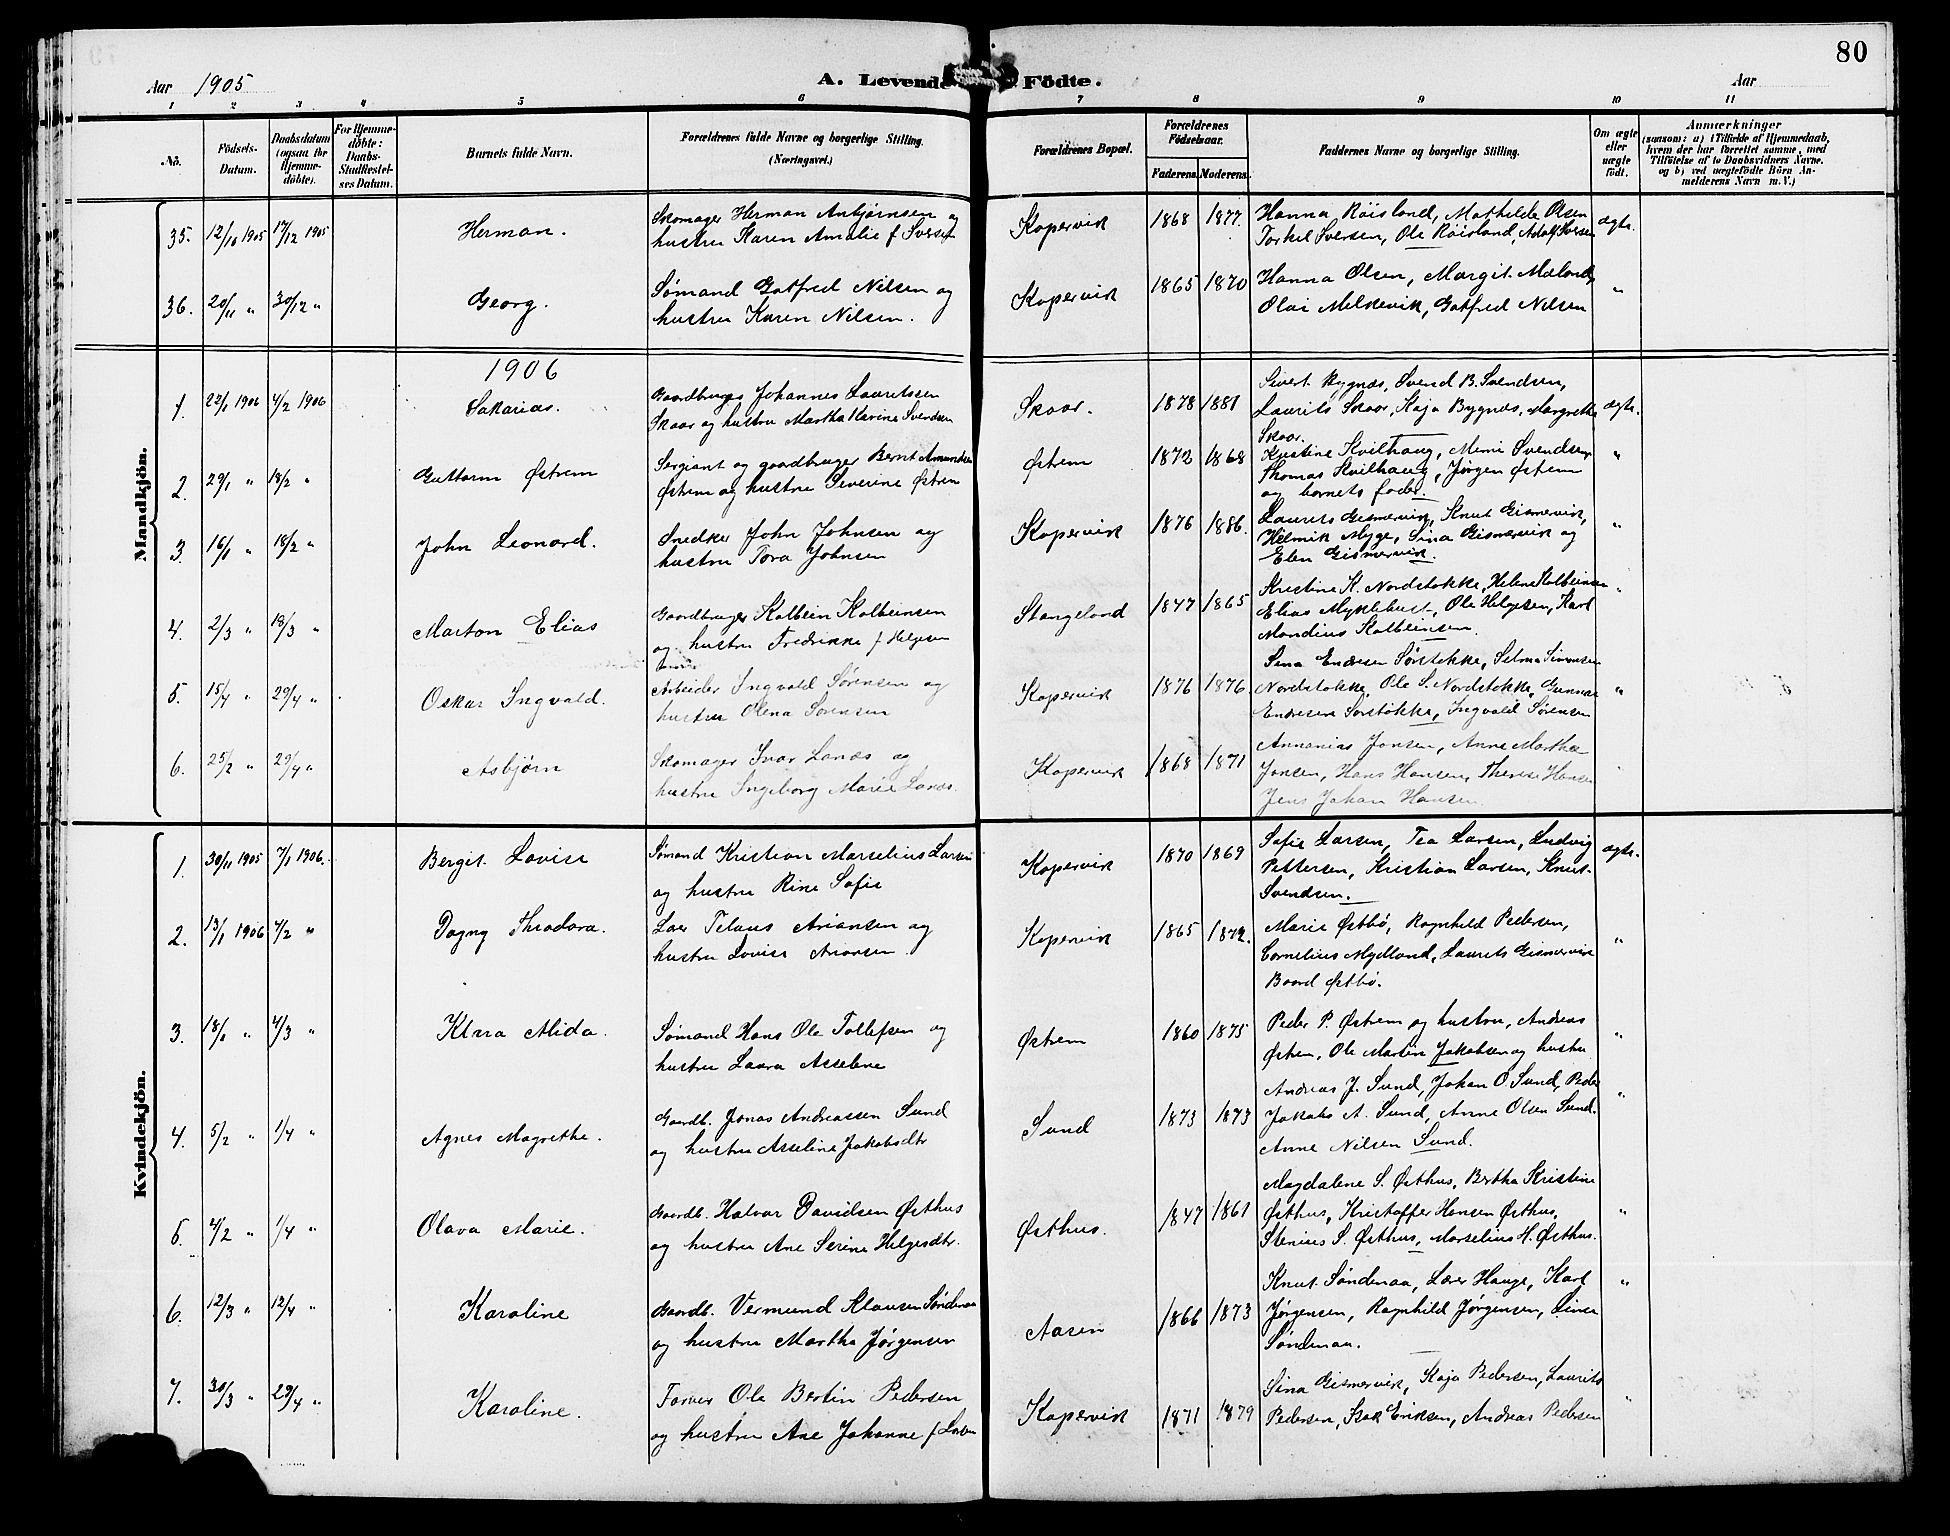 80
Aar 1905
A. Levende Födte.
Aar
1 2 3 4 5 6 7 8 9 10 11
No.
Födsels-Datum.
Daabsdatum (ogsaa for Hjemme-döbte).
For Hjemme-döbte: Daabs-Stadfæstel-ses Datum.
Barnets fulde Navn.
Forældrenes fulde Navne og borgerlige Stilling. (Næringsvei.)
Forældrenes Bopæl.
Forældrenes Födselsaar.
Faderens. Moderens.
Faddernes Navne og borgerlige Stilling.
Om ægte eller uægte födt.
Anmærkninger
(saasom: a) i Tilfælde af Hjemmedaab, hvem der har forrettet samme, med Tilföielse af to Daabsvidners Navne. og b) ved uægtefödte Börn An-melderens Navn m. V.)
Mandkjön.
35. 12/10 1905 17/12 1905 Herman. Skomager Herman Anbjørnsen og
hustru Karen Amalie f Iversen Kopervik 1868 1877. Hanna Røisland, Mathilde Olsen
Torkel Iversen, Ole Røisland, Adolf Iversen ægte.
36. 20/11 " 30/12 " Georg. Sømand Gotfred Nilsen og
hustru Karen Nilsen. Kopervik 1865 1870 Hanna Olsen, Margit Mæland,
Olai Melkevik, Gotfred Nilsen "
1906
1. 22/1 1906 4/2 1906 Sakarias. Gaardbruger Johannes Lauritssen
Skaar og hustru Martha Karine Svendsen Skaar. 1878 1881 Sivert Bygnes, Svend B. Svendsen,
Laurits Skaar, Kaja Bygnes, Margrethe
Skaar. ægte.
2. 29/1 " 18/2 " Guttorm Østrem Sergiant og gaardbruger Bernt Amundsen
Østrem og hustru Severine Østrem Østrem 1872 1868 Kristine Kvilhaug, Mimi Svendsen
Thomas Kvilhaug, Jørgen Østrem
og barnets fader. "
3. 16/1 " 18/2 " John Leonard. Snedker John Johnsen og
hustru Tora Johnsen Kopervik 1876 1886. Laurits Gismervik, Knut Gismervik,
Helmik Myge, Sina Gismervik og
Elen Gismervik. "
4. 2/3 " 18/3 " Marton Elias Gaardbruger Kolbein Kolbeinsen
og hustru Fredrikke f Helgesen Stangeland 1847 1865 Kristine K. Nordstokke, Helene Kolbeinsen
Elias Myklebust, Ole Helgesen, Karl
Mandius Kolbeinsen. "
5. 15/4 " 29/4 " Oskar Ingvald. Arbeider Ingvald Sørensen og
hustru Olena Sørensen Kopervik 1876 1876 Sina Endresen Sørstokke, Selma Simonsen
Nordstokke, Ole S. Nordstokke, Gunnar
Endresen Sørstokke, Ingvald Sørensen "
6. 25/2 " 29/4 " Asbjørn Skomager Ivar Lanes og
hustru Ingeborg Marie Lanes. Kopervik 1868 1871 Annanias Jonsen, Anne Martha
Jonsen, Hans Hansen, Therese Hansen
Jens Johan Hansen.
Kvindekjön.
1. 30/11 1905 7/1 1906. Bergit Lovise Sømand Kristian Marselius Larsen
og hustru Rine Sofie Kopervik 1870 1869 Sofie Larsen, Tea Larsen, Ludvig
Pettersen, Kristian Larsen, Knut
Svendsen. ægte.
2. 13/1 1906 4/2 " Dagny Theodora. Loer Telaus Ariansen og
hustru Lovise Ariansen. Kopervik 1865 1872. Marie Østbø, Ragnhild Pedersen,
Cornelius Mydland, Laurits Gismervik
Baard Østbø. "
3. 18/1 " 4/3 " Klara Alida. Sømand Hans Ole Tollefsen og
hustru Laura Asseline Østrem 1860 1875 Peder P. Østrem og hustru, Andreas
Østrem, Ole Martin Jakobsen og hustru "
4. 5/2 " 1/4 " Agnes Magrethe. Gaardb. Jonas Andreassen Sund
og hustru Asseline Jakobsdtr Sund 1873 1873 Andreas J. Sund, Johan O Sund, Peder
Jakobs A. Sund, Anne Olsen Sund.
Anne Nilsen Sund. "
5. 4/2 " 1/4 " Olava Marie. Gaardb. Halvar Davidsen Østhus
og hustru Ane Serine Helgesdtr. Østhus. 1847 1861 Magdalene S. Østhus, Bertha Kristine
Østhus, Kristoffer Hansen Østhus,
Stenius S. Østhus, Marselius H. Østhus. "
6. 12/3 " 12/4 " Karoline Gaardb. Vermund Klausen Søndenaa
og hustru Martha Jørgensen Aasen 1866 1873 Knut Søndenaa, Lærer Hauge, Karl
Jørgensen, Ragnhild Jørgensen, Sina
Søndenaa. "
7. 30/3 " 29/4 " Karoline. Farver Ole Bertin Pedersen
og hustru Ane Johanne f Larsen Kopervik 1871 1879 Sina Gismervik, Kaja Pedersen, Laurits
Pedersen, Isak Eriksen, Andreas Pedersen "